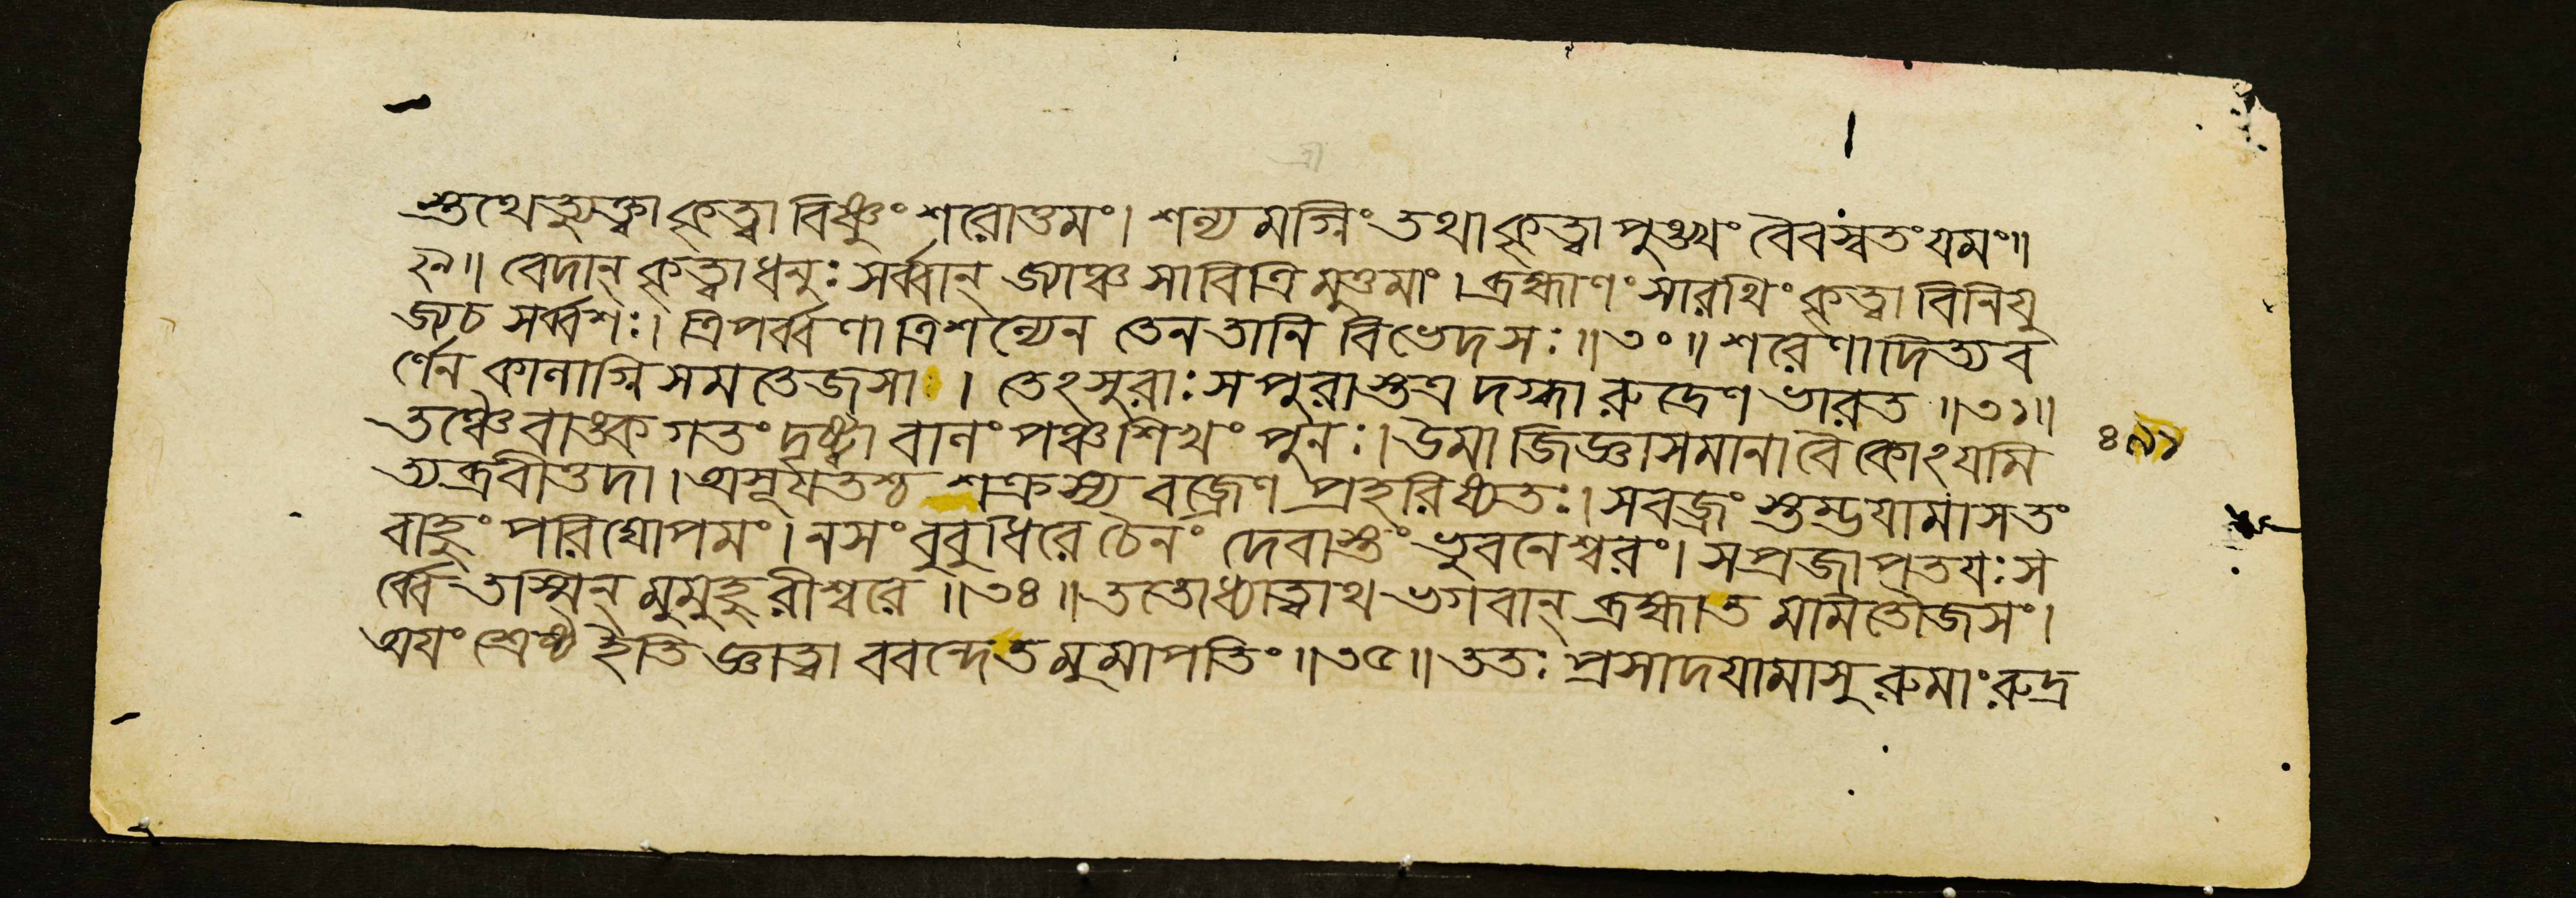 স্তথেত্যুক্ত্বা কৃত্বা বিষ্ণুং শরোত্তমং। শল্য মগ্নিং তথা কৃত্বা পুঙ্খং বৈবস্বতং যমং॥
২৯॥ বেদান্ কৃত্বা ধনুঃ সর্ব্বান্ জ্যাঞ্চ সাবিত্রি মুত্তমাং। ব্রহ্মাণং সারথিং কৃত্বা বিনিযু
জ্য চ সর্ব্বশঃ। ত্রিপর্ব্বণা ত্রিশল্যেন তেন তানি বিভেদ সঃ॥৩০॥ শরেণাদিত্যব
র্ণেন কালাগ্নি সম তেজসা। তেঽসুরাঃ সপুরাস্তত্র দগ্ধা রুদ্রেণ ভারত॥৩১॥
তঞ্চৈবাঙ্ক গতং দৃষ্ট্বা বালং পঞ্চশিখং পুনঃ। উমা জিজ্ঞাসমানা বৈ কোঽযমি
ত্যব্রবীত্তদা। অসূযতশ্চ শক্রস্য বজ্রেণ প্রহরিষ্যতঃ। সবজ্রং স্তম্ভযামাস তং
বাহুং পরিঘোপমং। ন সংবুবুধিরে চৈনং দেবাস্তং ভুবনেশ্বরং। সপ্রজাপতযঃ স
র্ব্বে তস্মিন্ মুমুহু রীশ্বরে॥৩৪॥ ততো ধ্যাত্বাথ ভগবান্ ব্রহ্মা ত মমিতৌজসং।
অযং শ্রেষ্ঠ ইতি জ্ঞাত্বা ববন্দে ত মুমাপতিং॥৩৫॥ ততঃ প্রসাদযামাসু রুমাং রুদ্র